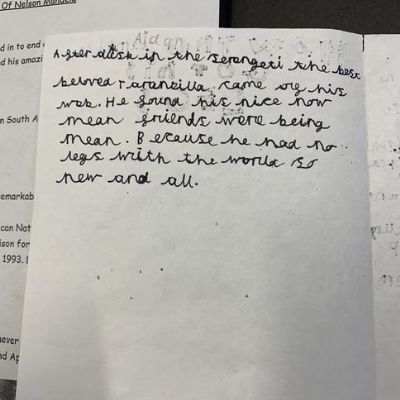 Of Nelson Mandela
d in to end
d his amazi
n South A
emarkab
can Nat
ison for
1993. I
ever
nd Ap
Aidan
After dusk in the serengeti the best
beloved Tarancilla came of his
web. He found his nice now
mean friends were being
mean. Because he had no
legs with the world so
new and all.